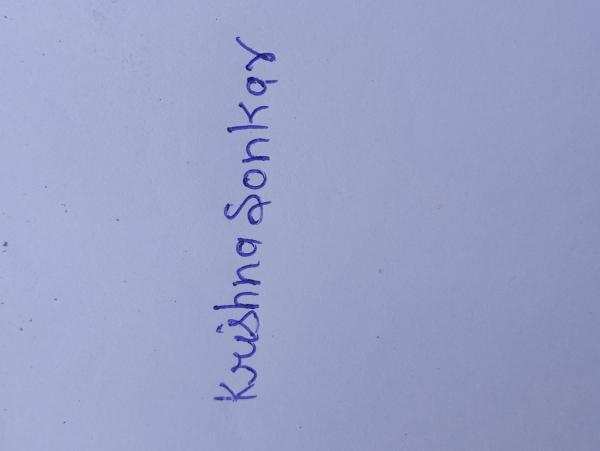 Krishna Sonkar